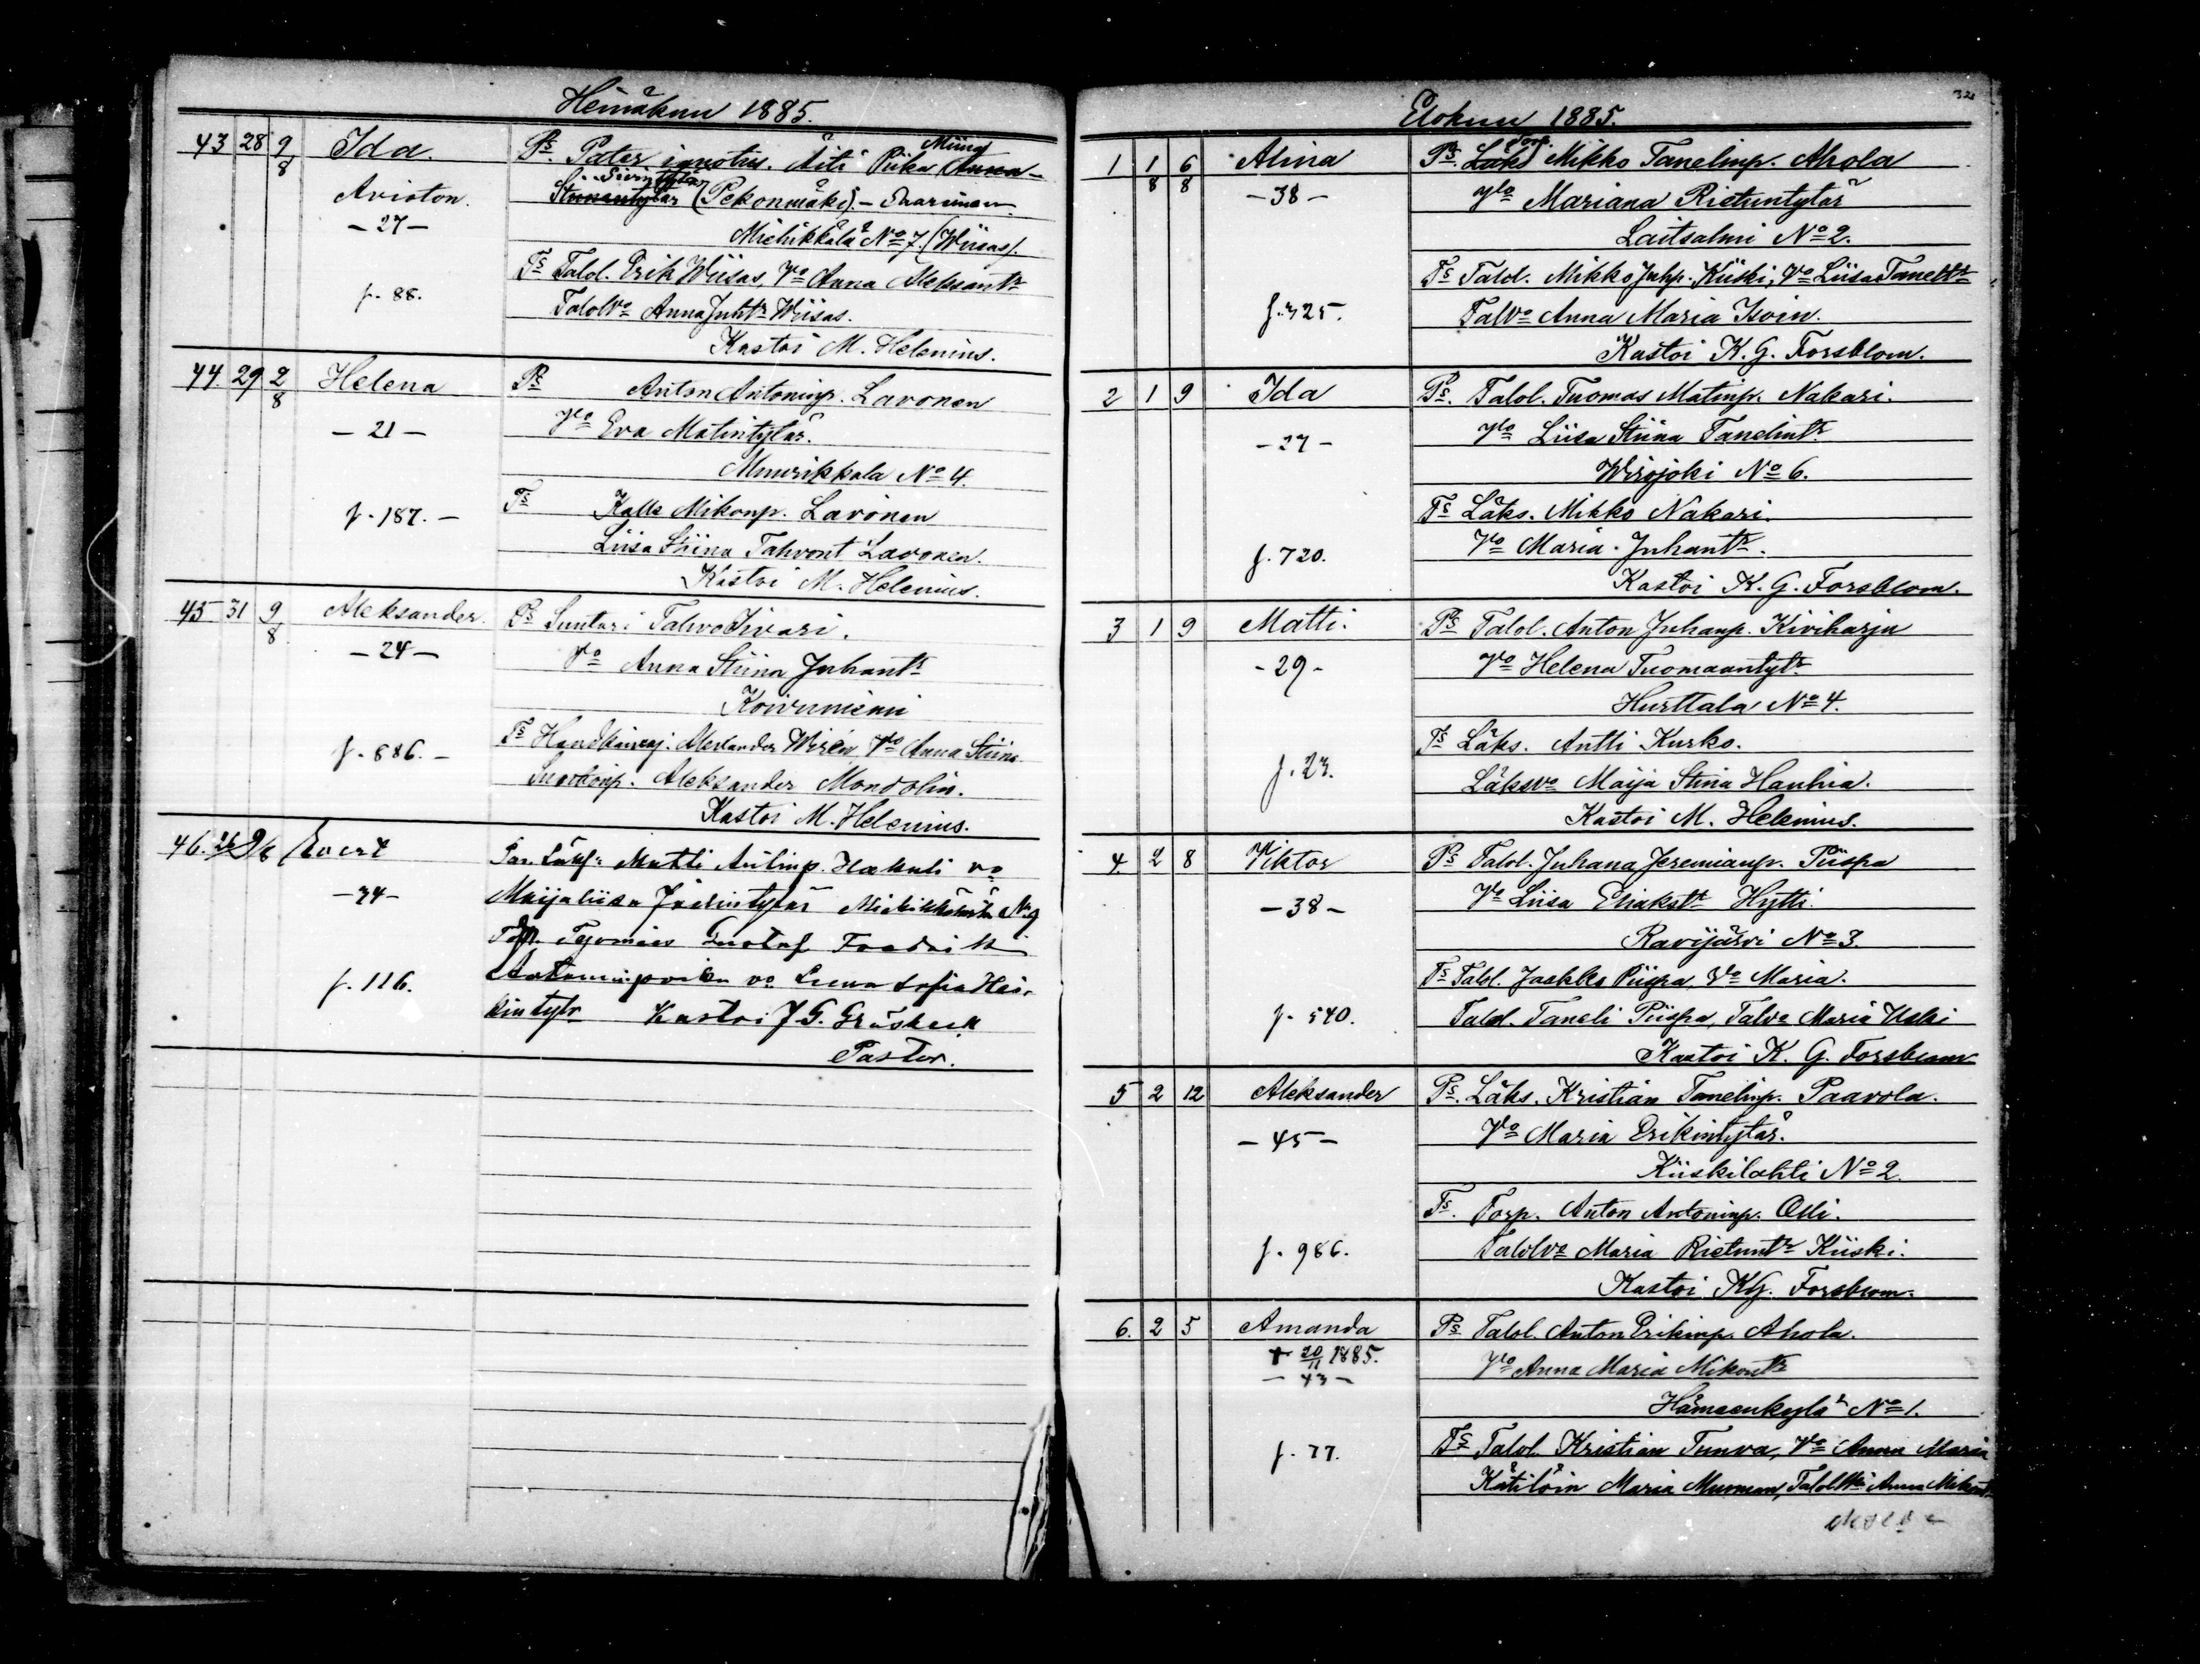 Heinäkuu 1885.
43 28 9/8 Ida. Ps. Pater ignotus. Äiti Piika Miina Anna
Avioton. (Pekonmäki). –
– 27 – Miehikkälä No 7. (Wiisas).
Ts Talol. Erik Wiisas, Vo Anna Aleksantr
f. 88. Talolvo Anna Juhtr Wiisas.
Kastoi M. Helenius.
44. 29 2/8 Helena Ps Anton Antoninp. Lavonen
– 21 – Vo Eva Matintytär.
Muurikkala No 4.
f. 187. – Ts Kalle Mikonp. Lavonen
Liisa Stiina Tahvont Lavonen.
Kastoi M. Helenius.
45 31 9/8 Aleksander. Ps Suutari Tahvo Iivari.
– 24 – Vo Anna Stiina Juhantr
Koivuniemi
f. 886. – Ts Alexander Wirén, Vo Anna Stiina
Aleksander Mondolin.
Kastoi M. Helenius.
46. 26 9/8 Evert Matti Antinp. Hakuli vo
– 34 – Maijaliisa No 9
Gustaf Fredrik
f. 116. Antoninpoika vo Leena Sofia Hei-
kintytr Kastoi J. G. Gråsbeck
Pastor.
32
Elokuu 1885.
1 1/8 6/8 Alina Ps. Torp. Läks Mikko Tanelinp. Ahola
– 38 – Vo Mariana Rietuntytär
Laitsalmi No 2.
Ts Talol. Mikko Juhp. Kiiski, Vo Liisa Taneltr
f. 325. Talvo Anna Maria Isoin.
Kastoi K. G. Forsblom.
2 1 9 Ida Ps. Talol. Tuomas Matinp. Nakari.
– 27 – Vo Liisa Stiina Tanelintr
Wirojoki No 6.
Ts Läks. Mikko Nakari.
f. 720. Vo Maria Juhantr.
Kastoi K. G. Forsblom.
3 1 9 Matti. Ps Talol. Anton Juhanp. Kiviharju
– 29 – Vo Helena Tuomaantytr
Hurttala No 4.
Ts Läks. Antti Kurko.
f. 23. Läksvo Maija Stina Hauhia.
Kastoi M. Helenius.
4. 2 8 Viktor Ps Talol. Juhana Jeremianp. Piispa
– 38 – Vo Liisa Eliakstr Hytti.
Ravijärvi No 3.
Ts Talol. Jaakko Piispa, Vo Maria.
f. 540. Talol. Taneli Piispa, Talvo Maria Uski
Kastoi K. G. Forsblom
5 2 12 Aleksander Ps. Läks. Kristian Tanelinp. Paavola.
– 45 – Vo Maria Erikintytär.
Kiiskilahti No 2.
Ts. Torp. Anton Antoninp. Olli.
f. 986. Talolvo Maria Rietuntr Kiiski.
Kastoi K.G. Forsblom.
6. 2 5 Amanda Ps Talol. Anton Erikinp. Ahola.
† 20/11 1885. Vo Anna Maria Mikontr
– 43 – Hämeenkylä No 1.
f. 77. Ts Talol. Kristian Tunva, Vo Anna Maria
Kätilöin Maria Murman, Anna Mikont